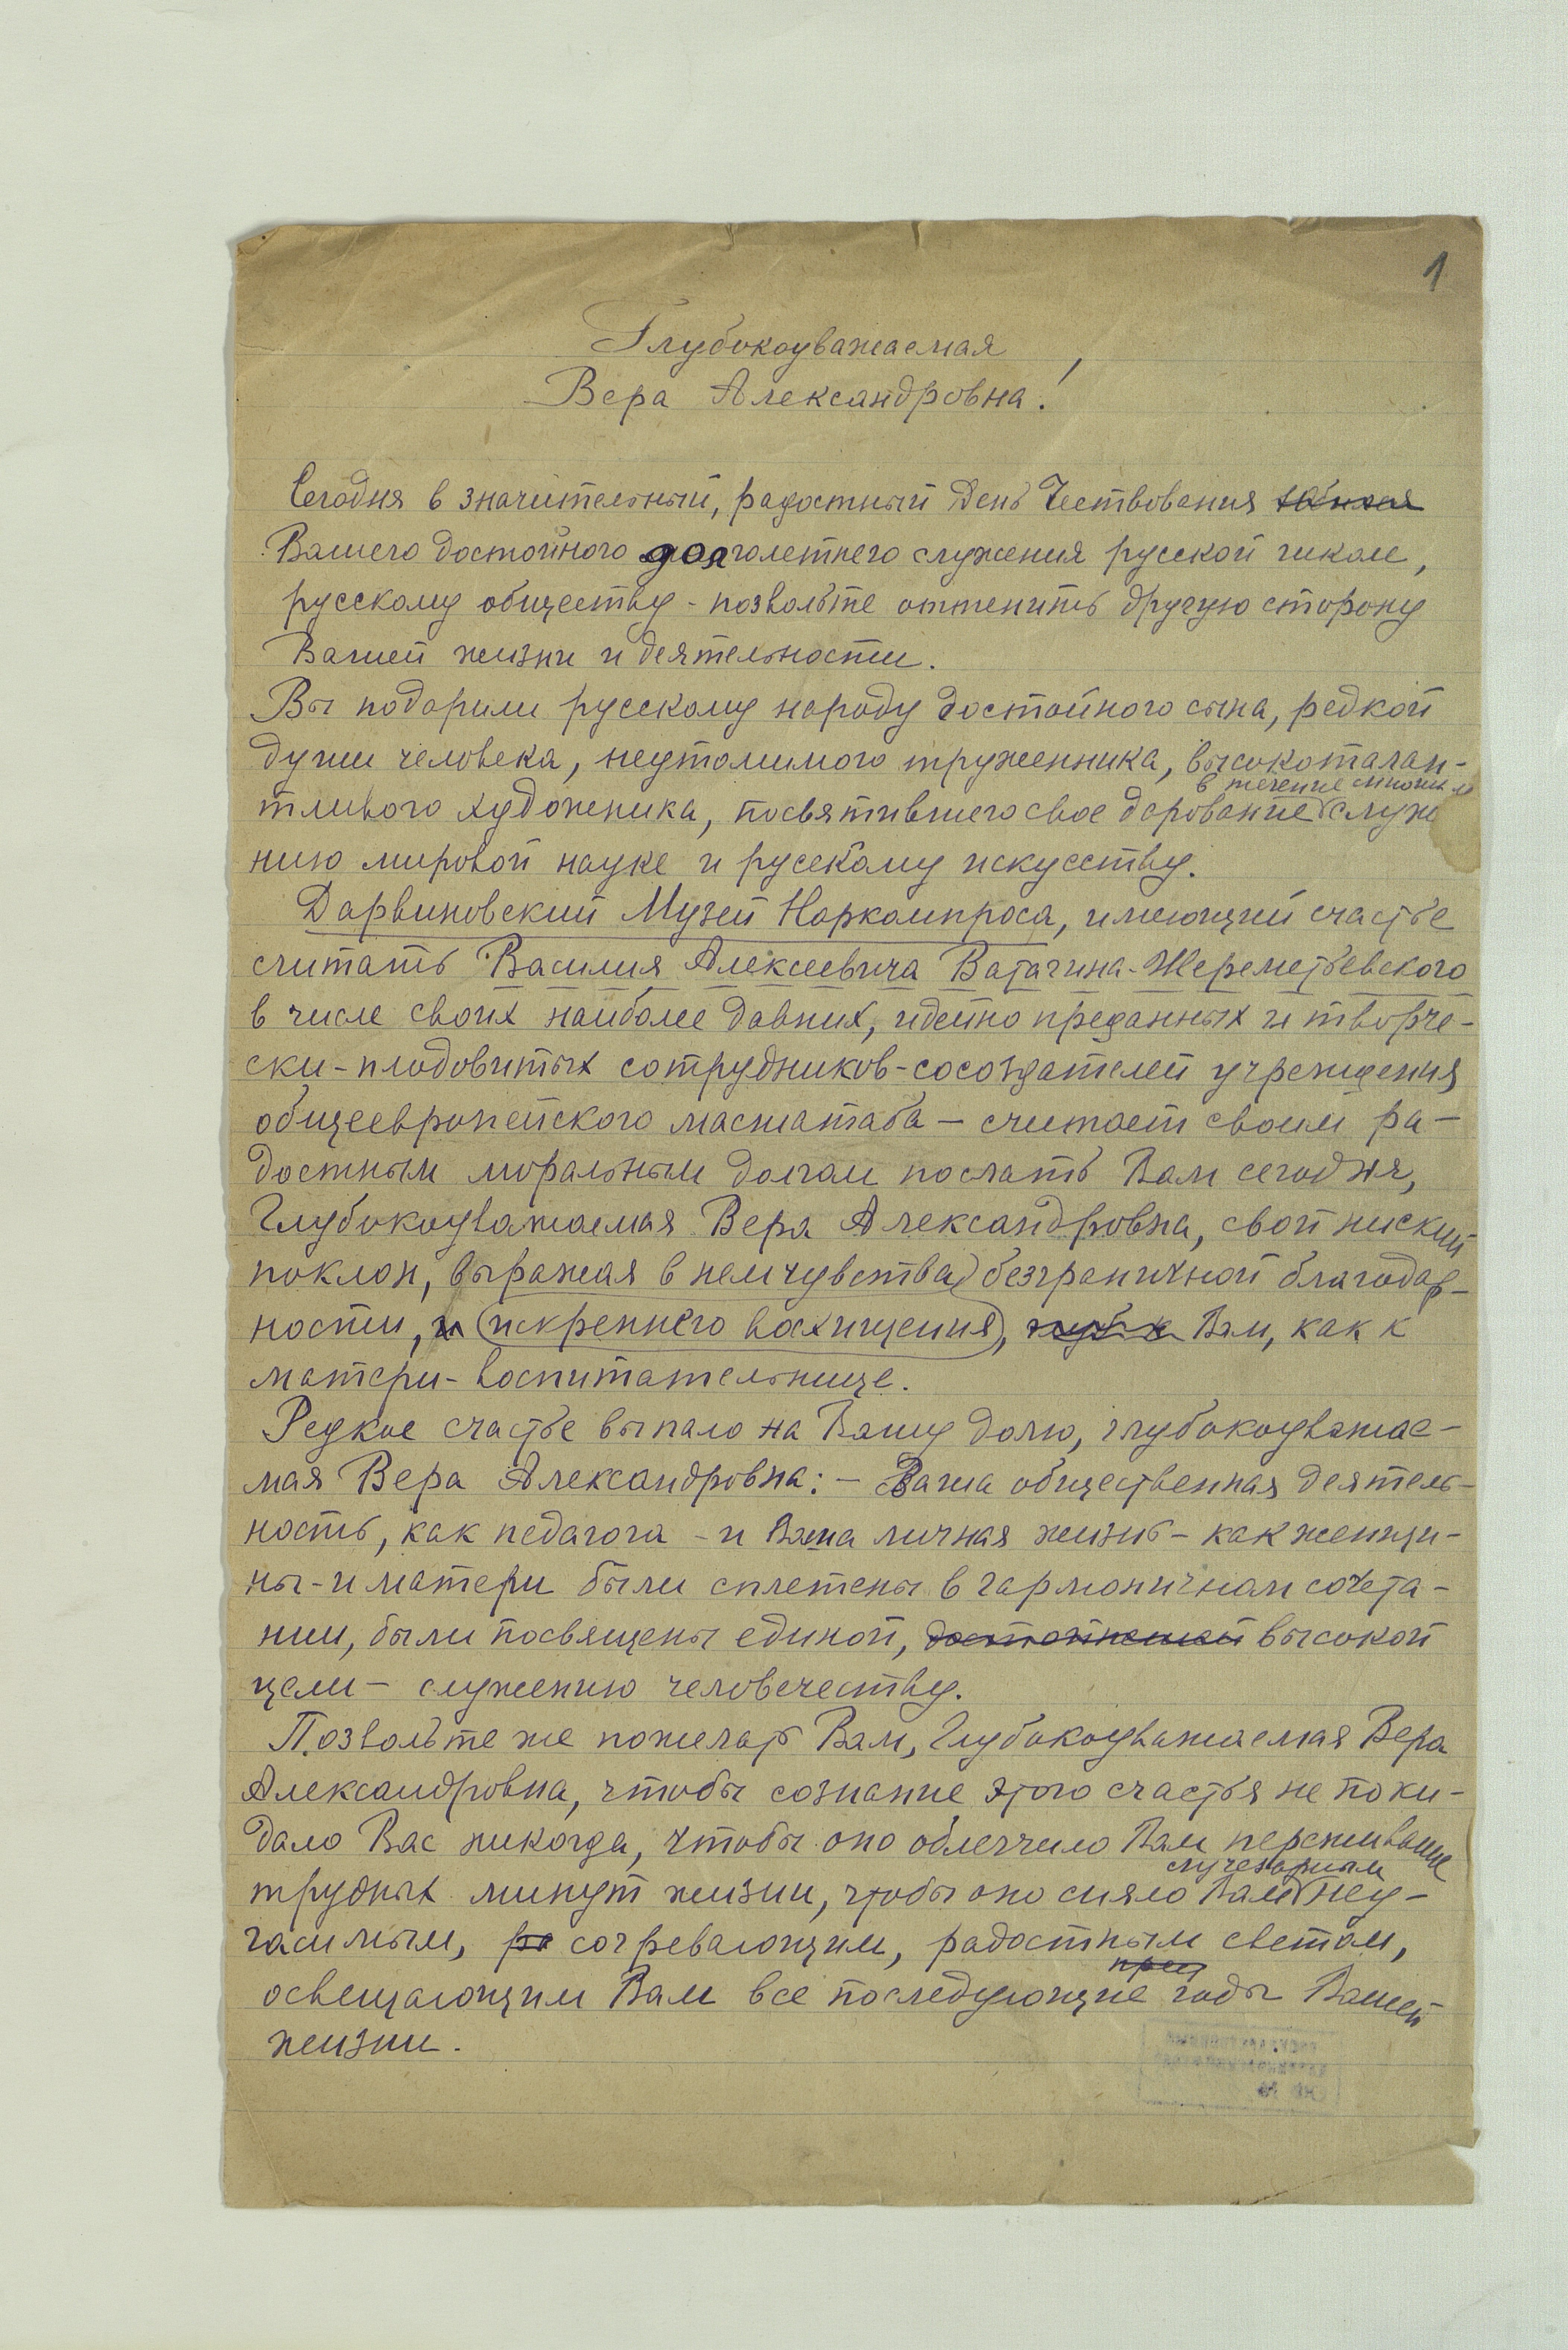 1
Глубокоуважаемая
Вера Александровна!
Сегодня в значительный, радостный день Чествования
Вашего достойного долголетнего служения русской школе,
русскому обществу - позвольте оттенить другую сторону
Вашей жизни и деятельности.
Вы подарили русскому народу достойного сына, редкой
души человека, неутомимого труженника, высокоталан-
в течение многих
тливого художника, посвятившего свое дарование служ
нию мировой науке и русскому искусству.
Дарвиновский Музей Наркомпроса, имеющий счастье
считать Василия Алексеевича Ватагина-Шереметьевского
в числе своих наиболее давних, идейно преданных и творче-
ски-плодовитых сотрудников-сосоздателей учреждения
общеевропейского масштаба — считает своим ра-
достным моральным долгом послать Вам сегодня,
Глубокоуважаемая Вера Александровна, свой ниский
поклон, выражая в нем чувства безграничной благодар-
ности, и (искреннего восхищения), Вам, как к
матери-воспитательнице.
Редкое счастье выпало на Вашу долю, глубокоуважае-
мая Вера Александровна: — Ваша общественная деятель-
ность, как педагога - и Ваша личная жизнь - как женщи-
ны-и матери были сплетены в гармоничном сочета-
нии, были посвящены единой, достойнейшей высокой
цели — служению человечеству.
Позвольте же пожелать Вам, Глубокоуважаемая Вера
Александровна, чтобы сознание этого счастья не поки-
дало Вас никогда, чтобы оно облегчило Вам переживание
лучезарным
трудных минут жизни, чтобы оно сияло Вам неу-
гасимым, ра согревающим, радостным светом,
пред
освещающим Вам все последующие годы Вашей
жизни.